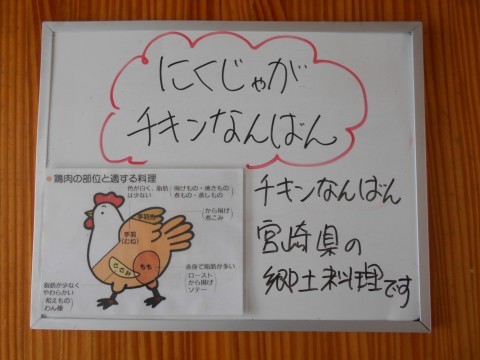 にくじゃが
チキンなんばん
鶏肉の部位と適する料理
色が白く、脂肪は少ない
揚げもの・焼きもの
煮もの・蒸しもの
手羽肉
から揚げ
煮こみ
手羽
(むね)
ささみ
もも
赤身で脂肪が多い
ロースト
から揚げ
ソテー
脂肪が少なく
やわらかい
和えもの
わん種
チキンなんばん
宮崎県の
郷土料理です